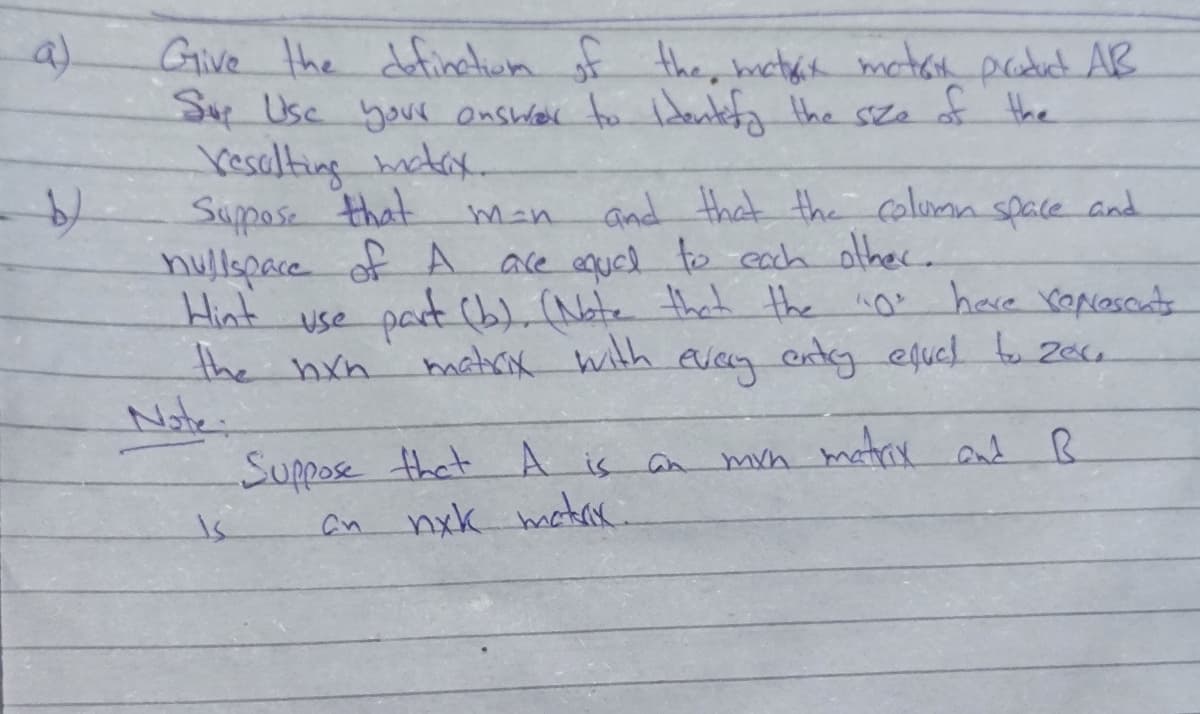 a) Give the defination of the matrix matrix product AB
Sup Use your answer to identify the size of the
resulting matrix.
b) Suppose that m=n and that the column space and
nullspace of A are equal to each other.
Hint use part (b). (Note that the "0" here represents
the nxn matrix with every entry equal to zero.
Note:
Suppose that A is an mxn matrix and B
is an nxk matrix.